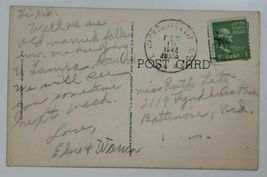 Hi Kid:
Well we are
old married folks
now. We are going
to
We will see
you sometime
next week.
Love,
Elsie & Warren
POST CARD
FEB
1942
1 CENT
Miss Ruth
2119
Baltimore, Md.